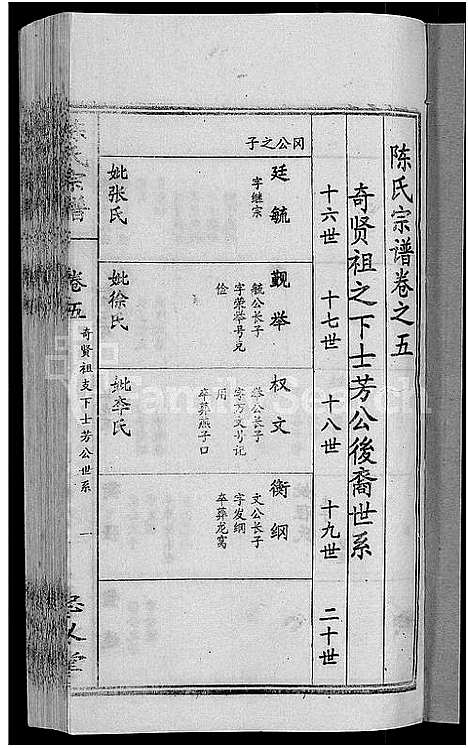 陈氏宗谱卷之五
奇贤祖之下士芳公後裔世系
十六世 十七世 十八世 十九世 二十世
冈公之子
廷毓
字继宗
妣张氏
觐举
毓公长子
字荣举号兑
俭
妣徐氏
权文
举公长子
字方文书记
用
卒葬燕子口
妣李氏
衡纲
文公长子
字发纲
卒葬龙窝
陈氏宗谱
卷五
奇贤祖支下士芳公世系
一
FamilySearch